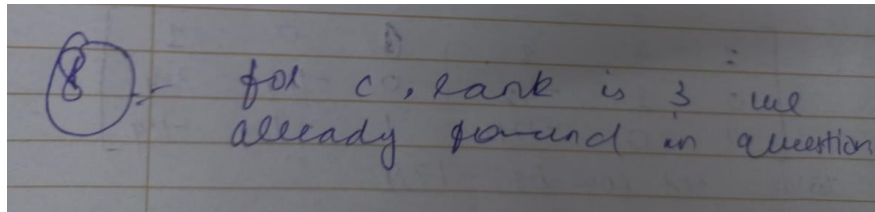 8 :- for C, rank is 3 we
already found in question